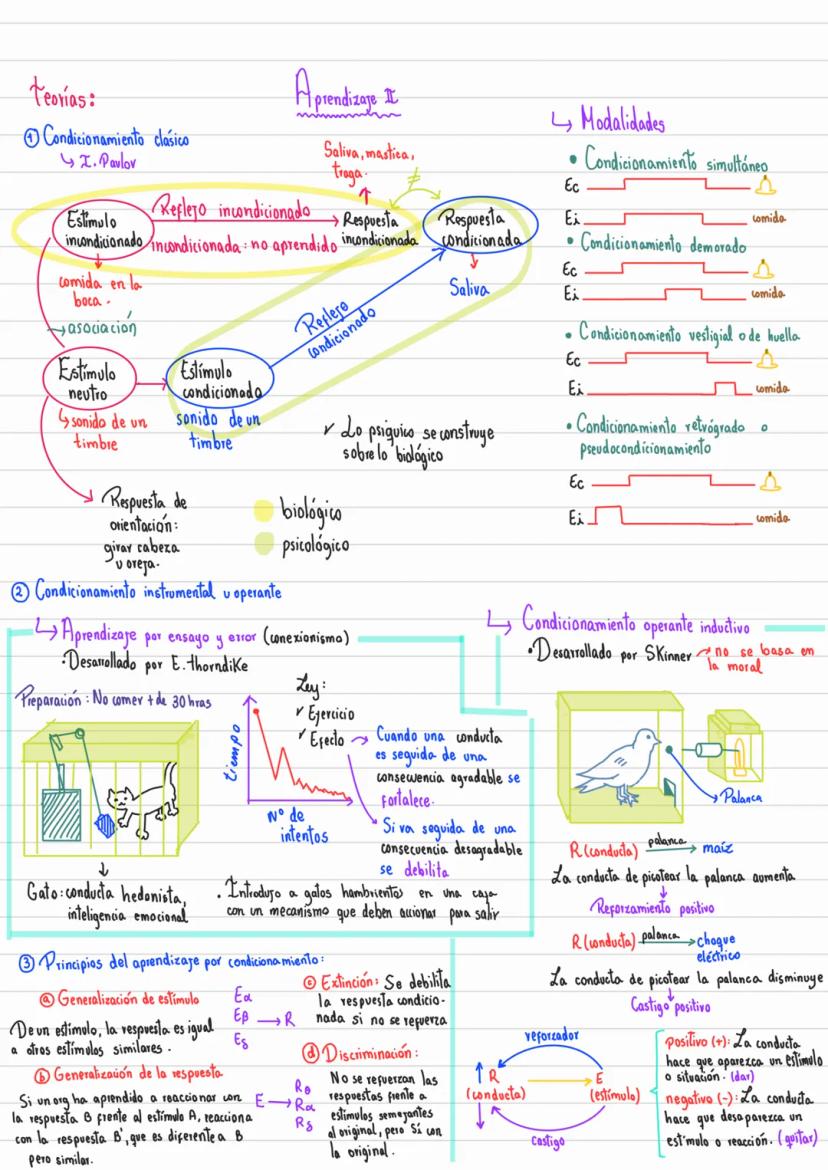 Aprendizaje II
teorías:
① Condicionamiento clásico
↳ I. Pavlov
Saliva, mastica,
traga.
≠
Estímulo
incondicionado
Reflejo incondicionado
incondicionada: no aprendido
Respuesta
incondicionada
Respuesta
condicionada
comida en la
boca.
Saliva
→ asociación
Reflejo
condicionado
Estímulo
neutro
Estímulo
condicionado
↳ sonido de un
timbre
sonido de un
timbre
✓ Lo psiquico se construye
sobre lo biológico
Respuesta de
orientación:
girar cabeza
u oreja.
biológico
psicológico
↳ Modalidades
• Condicionamiento simultáneo
Ec
Ei comida
• Condicionamiento demorado
Ec
Ei comida
• Condicionamiento vestigial o de huella
Ec
Ei comida
• Condicionamiento retrógrado o
pseudocondicionamiento
Ec
Ei comida
② Condicionamiento instrumental u operante
↳ Aprendizaje por ensayo y error (conexionismo)
• Desarrollado por E. thorndike
Preparación: No comer + de 30 hras
tiempo
N° de
intentos
Ley:
✓ Ejercicio
✓ Efecto → Cuando una conducta
es seguida de una
consecuencia agradable se
fortalece.
Si va seguida de una
consecuencia desagradable
se debilita
Gato: conducta hedonista,
inteligencia emocional
• Introdujo a gatos hambrientos en una caja
con un mecanismo que deben accionar para salir
↳ Condicionamiento operante inductivo
• Desarrollado por Skinner → no se basa en
la moral
Palanca
R (conducta) palanca → maíz
La conducta de picotear la palanca aumenta
Reforzamiento positivo
R (conducta) palanca → choque
eléctrico
La conducta de picotear la palanca disminuye
Castigo positivo
③ Principios del aprendizaje por condicionamiento:
ⓐ Generalización de estímulo
De un estímulo, la respuesta es igual
a otros estímulos similares.
Eα
Eβ → R
Eδ
ⓑ Generalización de la respuesta
Si un org ha aprendido a reaccionar con
la respuesta B frente al estímulo A, reacciona
con la respuesta B', que es diferente a B
pero similar.
Rθ
E → Rα
Rδ
ⓒ Extinción: Se debilita
la respuesta condicio-
nada si no se refuerza
ⓓ Discriminación:
No se refuerzan las
respuestas frente a
estímulos semejantes
al original, pero Sí con
la original.
reforzador
R
(conducta)
E
(estímulo)
castigo
positivo (+): La conducta
hace que aparezca un estímulo
o situación. (dar)
negativo (-): La conducta
hace que desaparezca un
estímulo o reacción. (quitar)